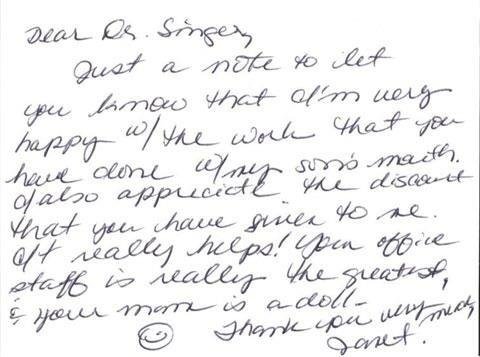 Dear Dr. Singer,
Just a note to let
you know that I'm very
happy w/ the work that you
have done w/ my son's mouth.
I also appreciate the discount
that you have given to me.
It really helps! Your office
staff is really the greatest,
& your mom is a doll-
Thank you very much,
Janet.